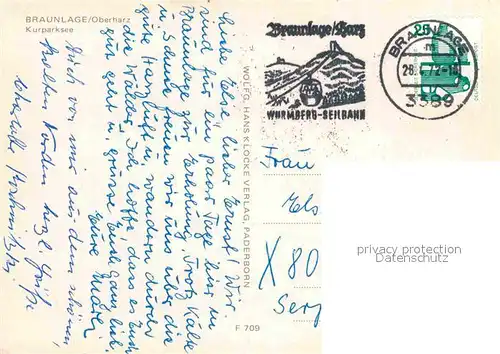 BRAUNLAGE/Oberharz
Kurparksee
Liebe Else, lieber Ernst! Wir
sind für ein paar Tage hier in
Braunlage zur Erholung. Trotz Kälte
u. freuen wir uns über die
gute Harzluft u. wandern durch
die Wälder. Ich hoffe, dass es Euch
gut geht u. grüsse Euch ganz lieb.
Eure
Auch von mir aus dem schönen,
kalten Norden herzl. Grüße
WOLFG. HANS KLOCKE VERLAG, PADERBORN
F 709
Braunlage/Harz
WURMBERG-SEILBAHN
BRAUNLAGE
3389
25
Frau
Els
X 80
privacy protection
Datenschutz